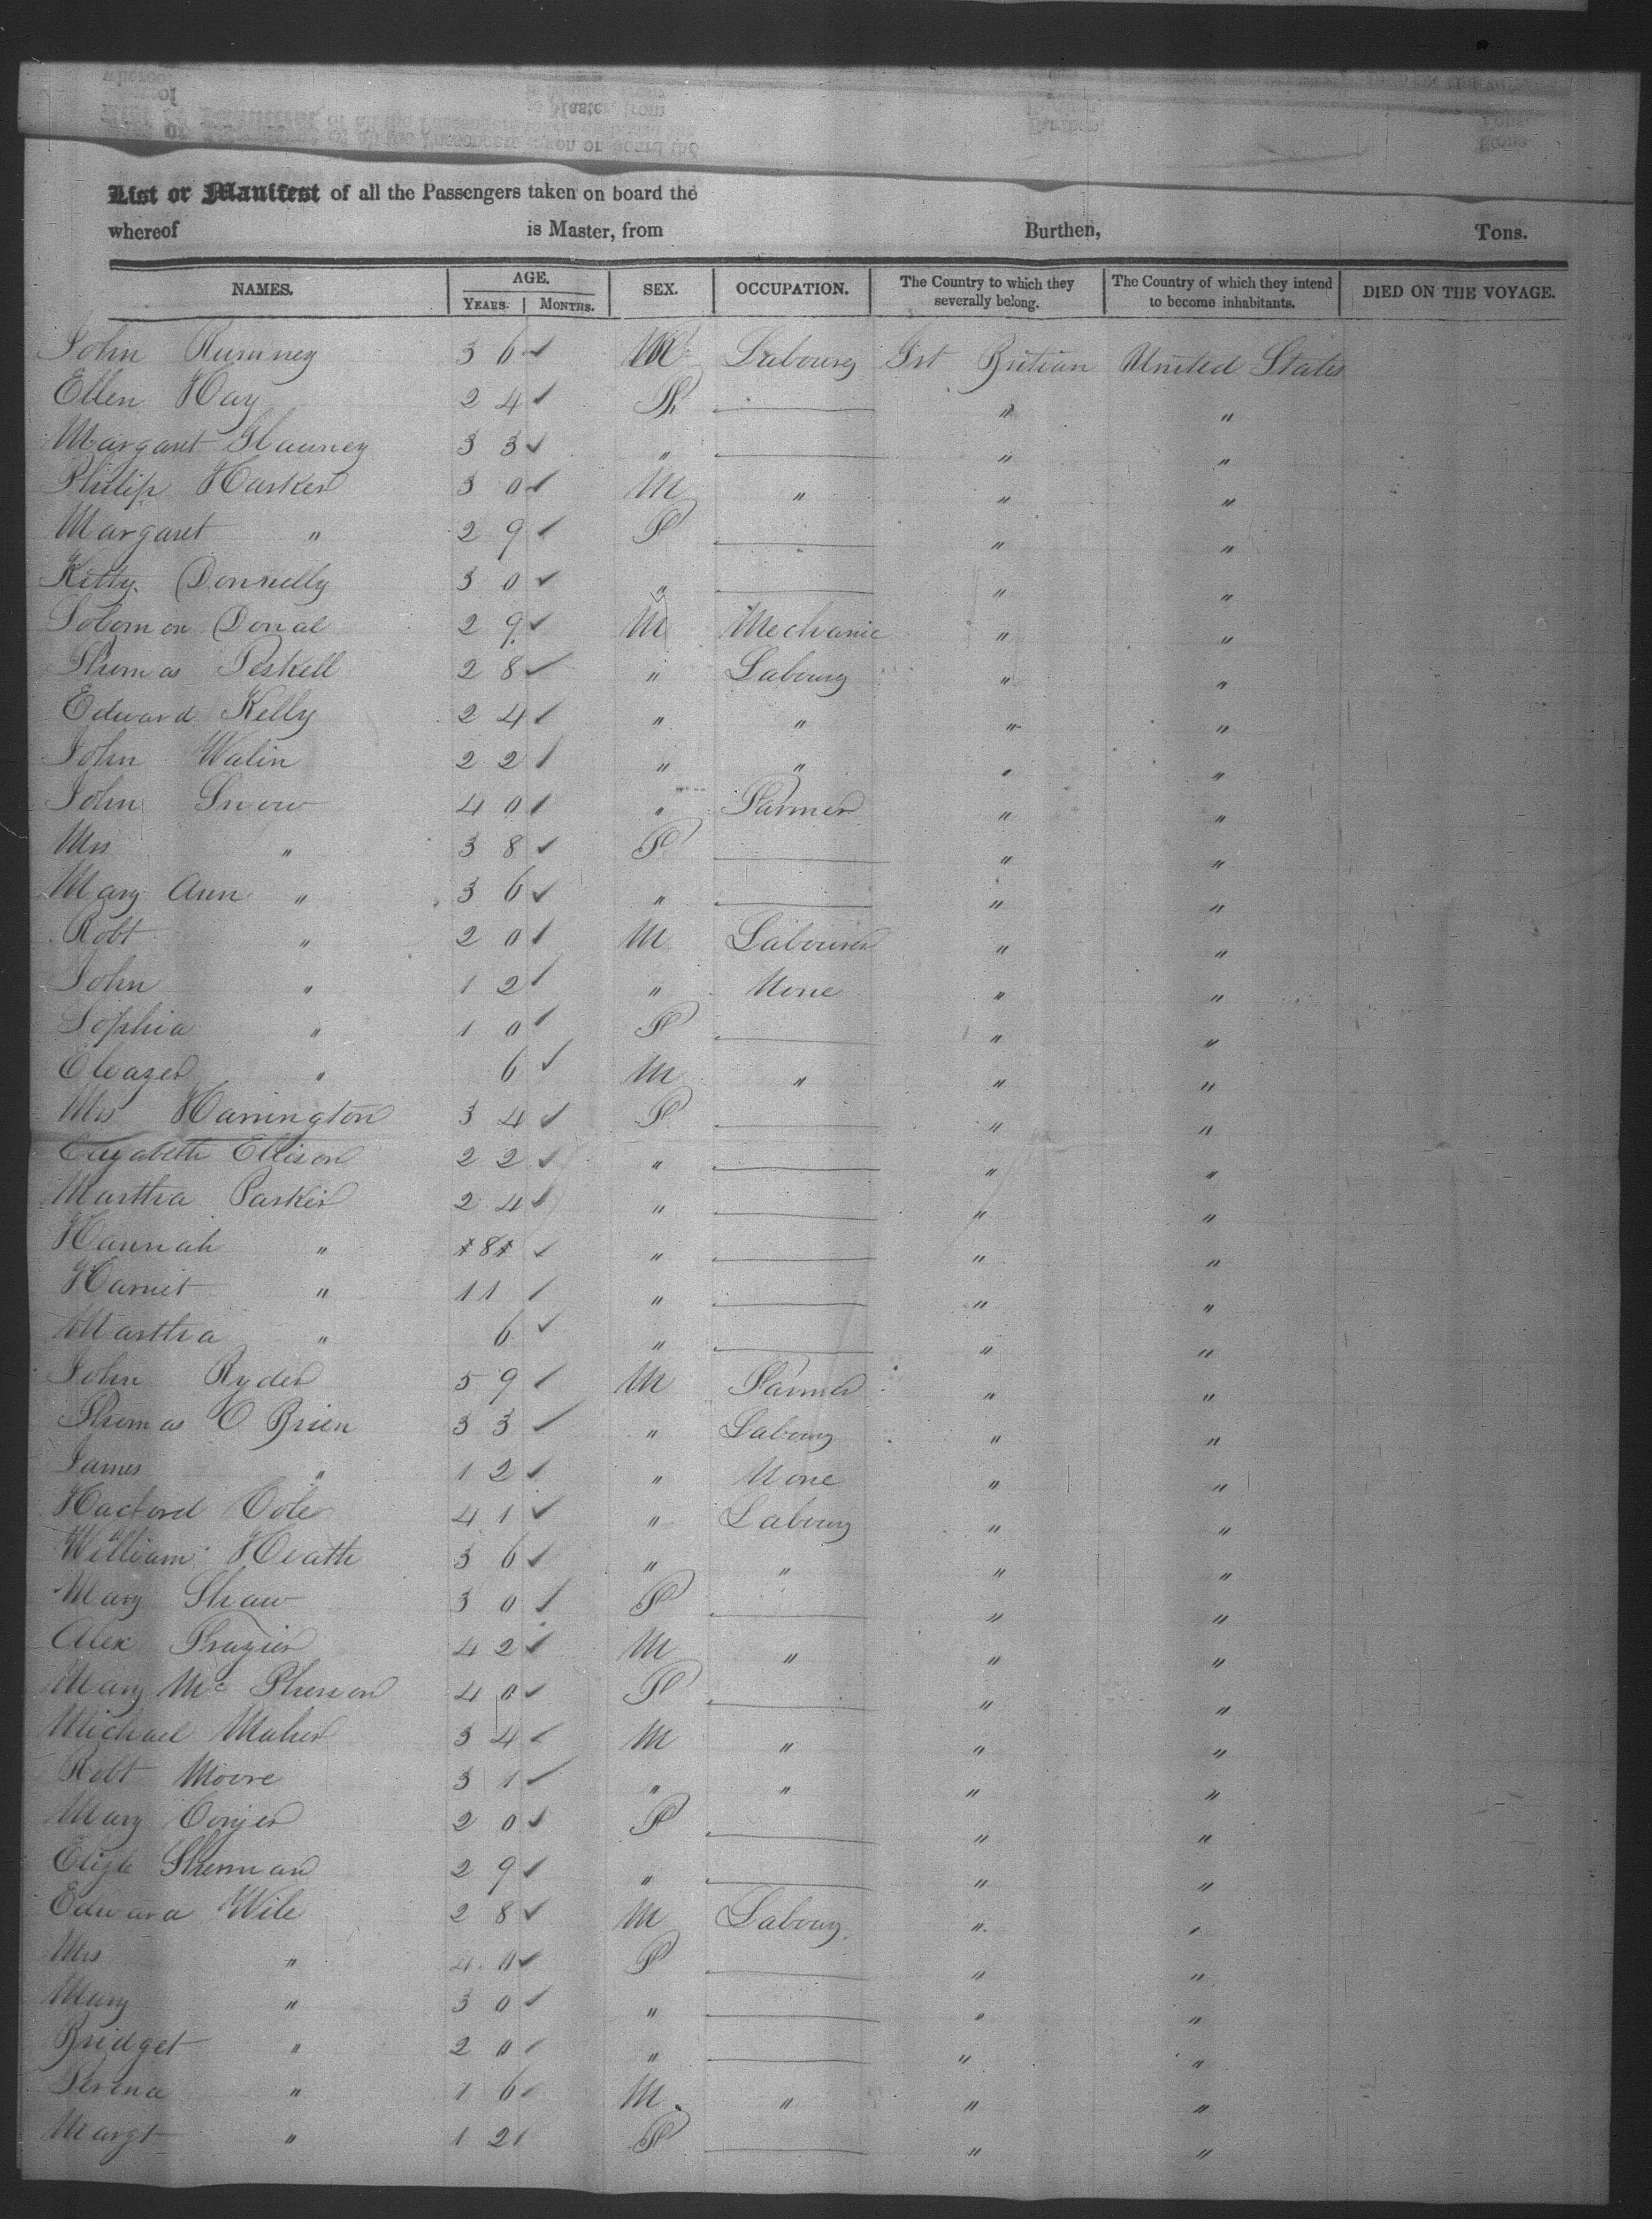 List or Manifest of all the Passengers taken on board the
whereof is Master, from Burthen, Tons.
NAMES. AGE. YEARS. MONTHS. SEX. OCCUPATION. The Country to which they severally belong. The Country of which they intend to become inhabitants. DIED ON THE VOYAGE.
John Rumney 36 M Labourer Grt Britian United States
Ellen Hay 24 F " "
Margaret 33 " " "
Philip Harker 30 M " " "
Margaret " 29 F " "
Kitty Donnelly 30 " " "
Solomon Donal 29 M Mechanic " "
Thomas Peskell 28 " Labourer " "
Edward Kelly 24 " " " "
John Walin 22 " " " "
John Snow 40 " Farmer " "
Mrs " 38 F " "
Mary Ann " 36 " " "
Robt " 20 M Labourer " "
John " 12 " None " "
Sophia " 10 F " "
Eleazer " 6 M " " "
Mrs Harrington 34 F " "
Elizabeth Ellison 22 " " "
Martha Parker 24 " " "
Hannah " 8 " " "
Harriet " 11 " " "
Martha " 6 " " "
John Ryder 59 M Farmer " "
Thomas O Brien 33 " Labourer " "
James " 12 " None " "
Cole 41 " Labourer " "
William Heath 36 " " " "
Mary Shaw 30 F " "
Alex Frazier 42 M " " "
Mary Mc Pherson 40 F " "
Michael Maher 34 M " " "
Robt Moore 31 " " " "
Mary Conjer 20 F " "
Elizh Sherman 29 " " "
Edward Wile 28 M Labourer " "
Mrs " 40 F " "
Mary " 30 " " "
Bridget " 20 " " "
" 16 M " " "
Margt " 12 F " "